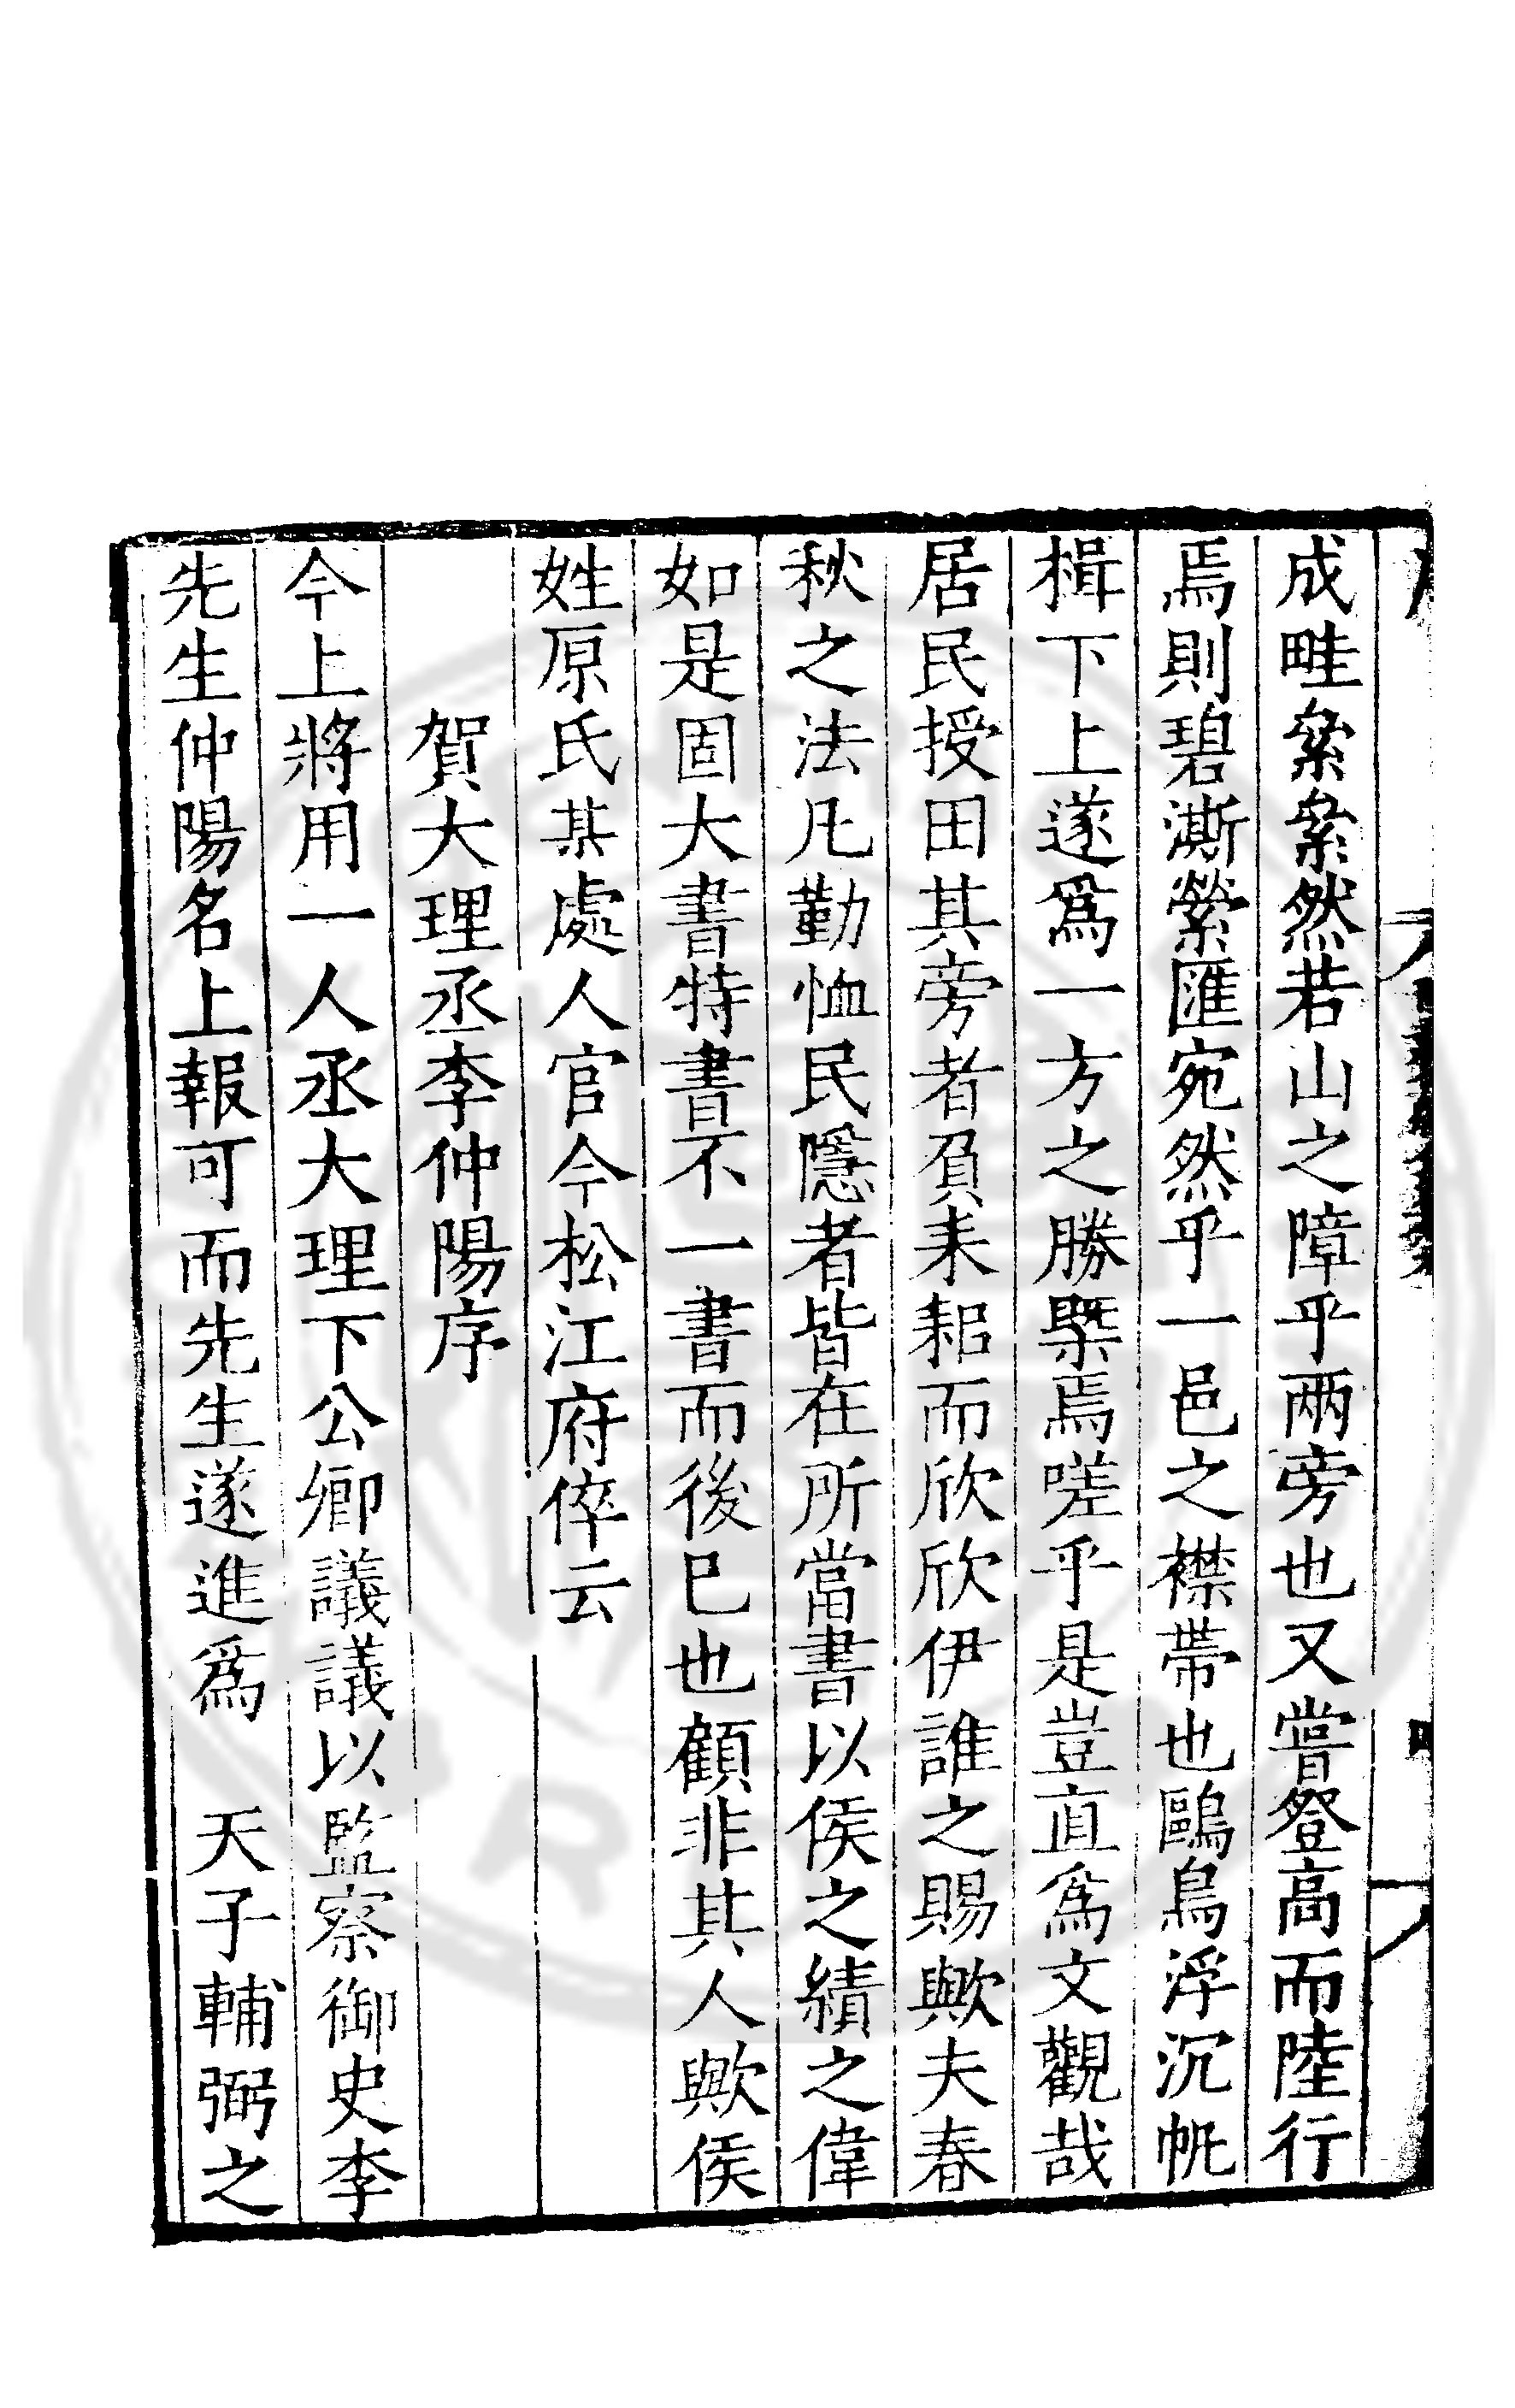 成畦纍纍然若山之障乎兩旁也又嘗登高而陸行
焉則碧澌縈匯宛然乎一邑之襟帶也鷗鳥浮沉帆
楫下上遂爲一方之勝槩焉嗟乎是豈直爲文觀哉
居民授田其旁者負耒耜而欣欣伊誰之賜歟夫春
秋之法凡勤恤民隱者皆在所當書以侯之績之偉
如是固大書特書不一書而後已也顧非其人歟侯
姓原氏某處人官今松江府倅云
賀大理丞李仲陽序
今上將用一人丞大理下公卿議議以監察御史李
先生仲陽名上報可而先生遂進爲　天子輔弼之